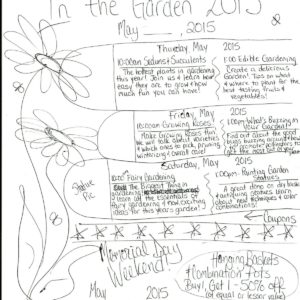 In the Garden 2015
May ___, 2015
Thursday, May 2015
10:00am Sedums & Succulents
The hottest plants in gardening
this year! Join us & learn how
easy they are to grow & how
much fun you can have!
1:00 Edible Gardening
Create a delicious
Garden! Tips on what
& where to plant for
the best tasting fruits &
vegetables!
Friday, May 2015
10:00am Growing Roses
Make Growing Roses
we will talk about varieties
which ones to pick, pruning,
winterizing & overall care!
1:00pm What's Buzzing in
Your Garden?
Find out about the good
bugs buzzing around & how
Saturday, May 2015
10:00 Fairy Gardening
The Biggest Thing in
gardening
learn all the essentials of
fairy gardening & new exciting
ideas for this years garden!
1:00pm Painting Garden
Statues
A great demo on dry back
& antiquing statues. Learn
about new techniques &
color combinations!
Statue
Pic
Coupons
Memorial Day
Weekend!
May 2015
Hanging Baskets
& Combination Pots
Buy 1, Get 1 - 50% off
of equal or lesser value